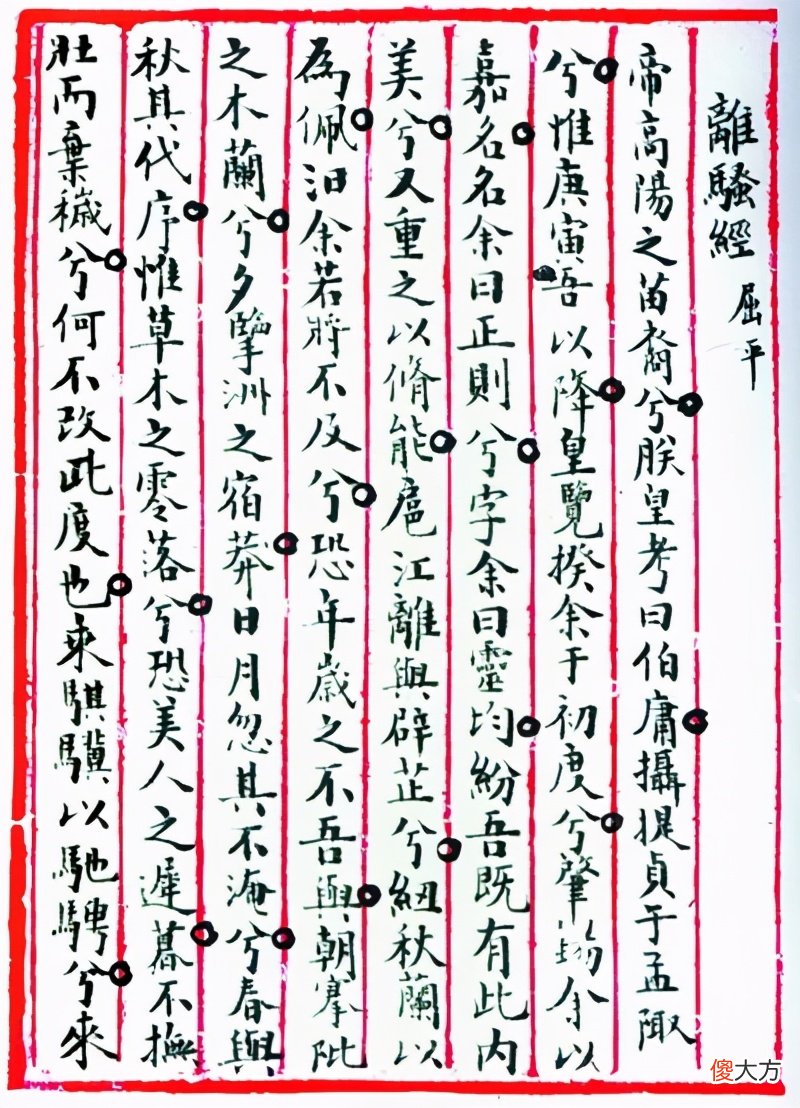 離騷經 屈平
帝高陽之苗裔兮朕皇考曰伯庸攝提貞于孟陬
兮惟庚寅吾以降皇覽揆余于初度兮肇錫余以
嘉名名余曰正則兮字余曰靈均紛吾既有此内
美兮又重之以脩能扈江離與辟芷兮紉秋蘭以
為佩汩余若將不及兮恐年歲之不吾與朝搴阰
之木蘭兮夕擥洲之宿莽日月忽其不淹兮春與
秋其代序惟草木之零落兮恐美人之遲暮不撫
壯而棄穢兮何不改此度也乘騏驥以馳騁兮來
傻大方